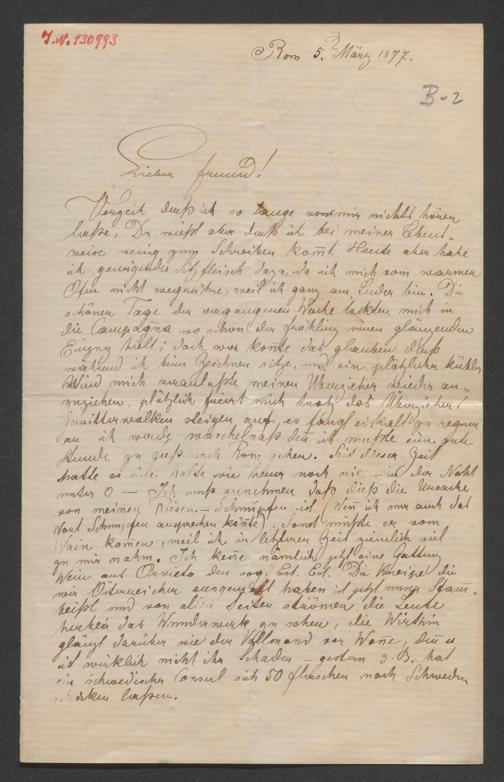 J.N. 130993
Rom 5. März 1877.
B-2
Lieber Freund!
Verzeih daß ich so lange von mir nichts hören
laße, Du weißt aber daß ich bei meiner Lebens-
weise wenig zum Schreiben kom̄t. Heute aber habe
ich genügendes Sitzfleisch dazu, da ich mich vom warmen
Ofen nicht wegrühre, weil ich ganz am Luder bin. Die
schönen Tage der vergangenen Woche lockten mich in
die Campagna wo schon der Frühling seinen glänzenden
Einzug hält; doch wer kon̄te das glauben daß
während ich beim Zeichnen sitze, mir ein plötzlicher kühler
Wind mich veranlaßte meinen Überzieher wieder an-
zuziehen, plötzlich friert mich trotz des Überziehers
Gewitterwolken steigen auf, es fängt eiskalt zu regnen
an ich werde waschelnaß den̄ ich mußte eine gute
Stunde zu Fuß nach Rom gehen. Seit dieser Zeit
hatte es eine Kälte wie heuer noch nie – in der Nacht
unter 0 – Ich muß annehmen daß dieß die Ursache
von meinem Riesen-Schnupfen ist. Wen̄ ich nur auch das
Wort Schnupfen aussprechen kön̄te! Sonst müßte es vom
Wein kom̄en, weil ich in letzterer Zeit ziemlich viel
zu mir nahm. Ich ken̄e nämlich jetzt eine Gattung
Wein aus Orvieto den sog. Est. Est. Die Kneipe die
wir Österreicher ausgesucht haben ist jetzt unser Stam̄-
beißl und von allen Seiten strömen die Leute
herbei das Wunderwerk zu sehen, die Wirthin
glänzt darüber wie der Vollmond vor Won̄e, den̄ es
ist wirklich nicht ihr Schaden – gestern z. B. hat
ein schwedischer Consul sich 50 Flaschen nach Schweden
schicken laßen.